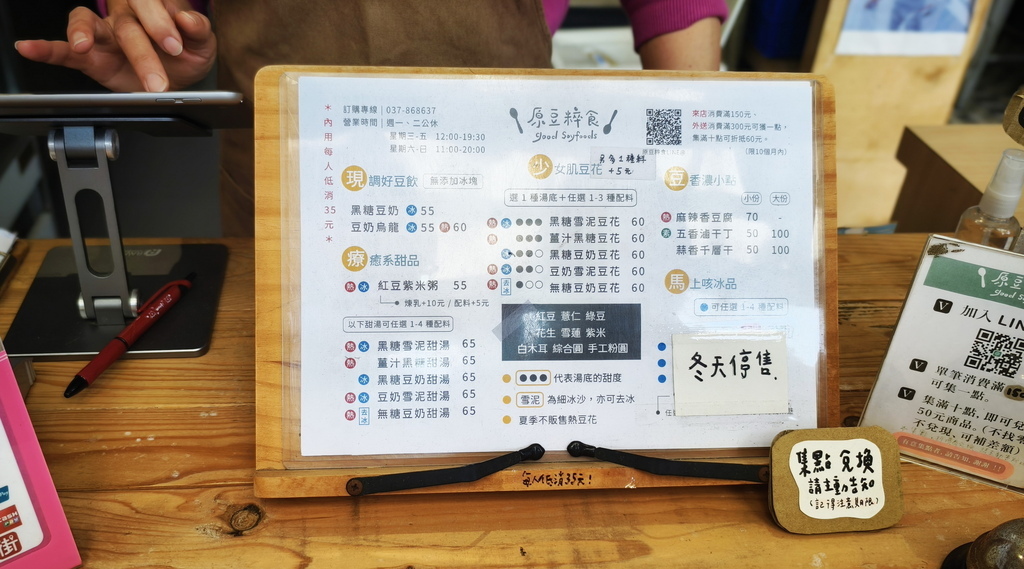 ＊內用每人低消35元＊
訂購專線｜037-868637
營業時間｜週一、二公休
星期三-五 12:00-19:30
星期六-日 11:00-20:00
原豆粹食
good Soyfoods
來店消費滿150元、
外送消費滿300元可獲一點，
集滿十點可折抵60元。
(限10個月內)
現調好豆飲 無添加冰塊
黑糖豆奶 冰 55
豆奶烏龍 冰 55 熱 60
療癒系甜品
熱 冰 紅豆紫米粥 55
煉乳+10元 / 配料+5元
以下甜湯可任選 1-4 種配料
熱 冰 黑糖雪泥甜湯 65
熱 薑汁黑糖甜湯 65
熱 冰 黑糖豆奶甜湯 65
熱 冰 豆奶雪泥甜湯 65
熱 去冰 無糖豆奶甜湯 65
少女肌豆花
另多1種料
+5元
選 1 種湯底＋任選 1-3 種配料
熱 冰 ●●● 黑糖雪泥豆花 60
熱 ●●● 薑汁黑糖豆花 60
冰 ●●○ 黑糖豆奶豆花 60
熱 冰 ●●○ 豆奶雪泥豆花 60
熱 去冰 ●○○ 無糖豆奶豆花 60
紅豆 薏仁 綠豆
花生 雪蓮 紫米
白木耳 綜合圓 手工粉圓
●●● 代表湯底的甜度
雪泥 為細冰沙，亦可去冰
夏季不販售熱豆花
豆香濃小點
小份 大份
熱 麻辣香豆腐 70 -
素 五香滷干丁 50 100
蒜香千層干 50 100
馬上咳冰品
可任選 1-4 種配料
冬天停售.
每人低消35元！
集點 兌換
請主動告知
(記得注意期限)
原豆
good S
V 加入 LIN
V 單筆消費滿
可集一點。
V 集滿十點，即可兌
50元商品。(不找零
不兌現，可補差額)